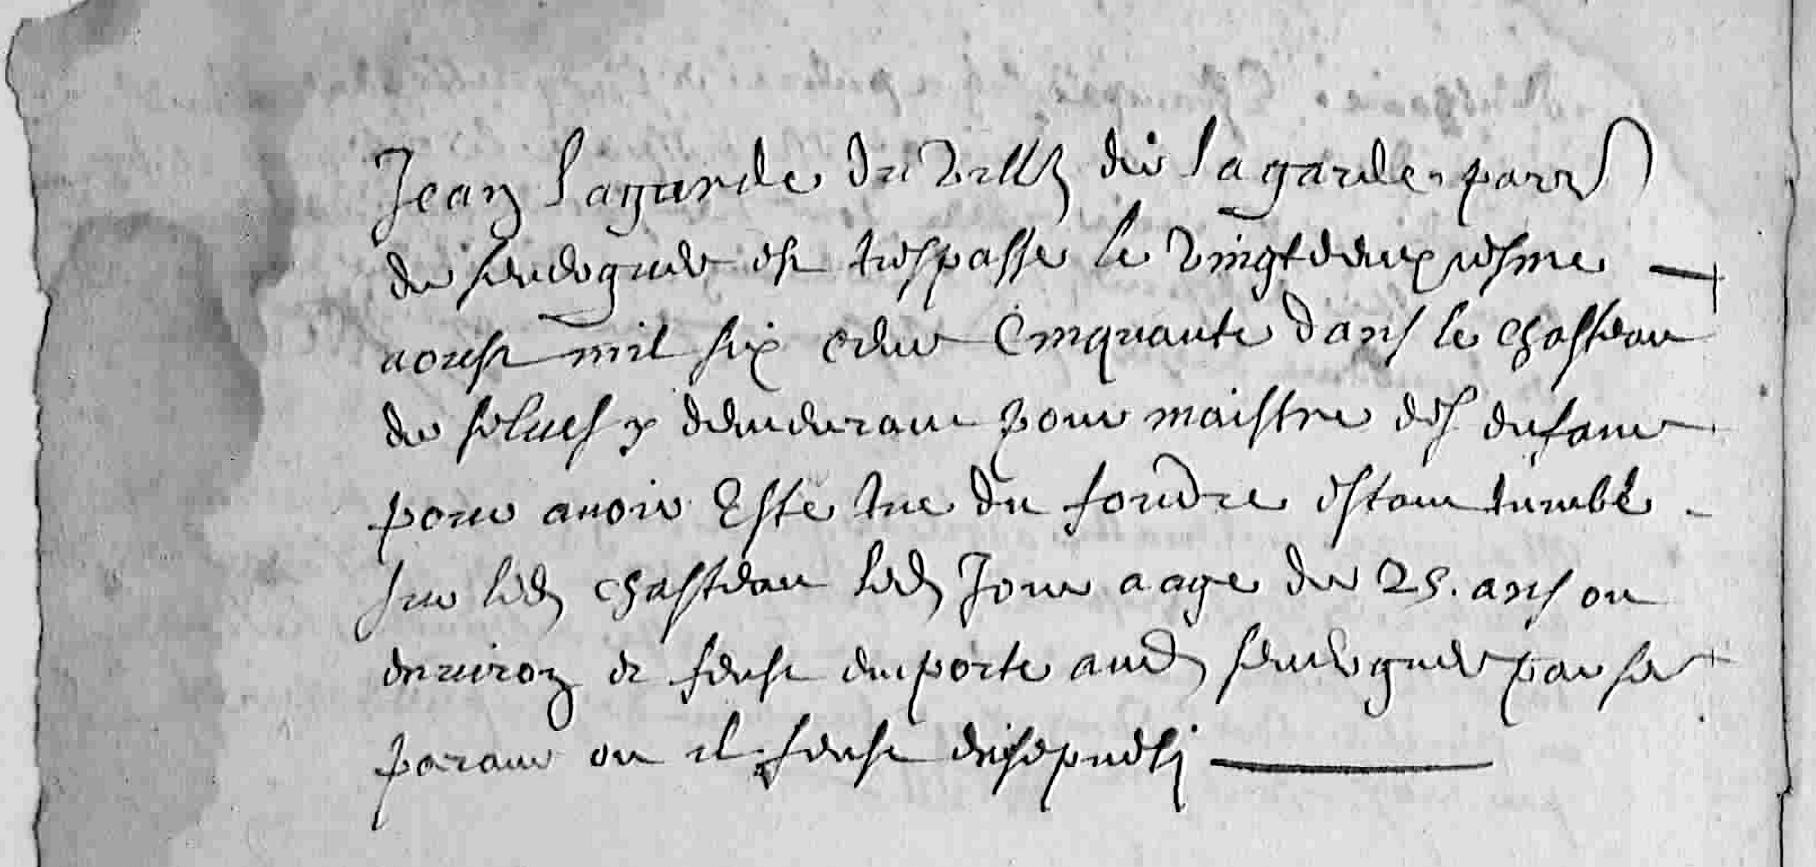 Jean Lagarde du vill. de Lagarde parr.
de senergues est trespasse le vingtdeuxiesme
aoust mil six cens cinquante dans le chasteau
de selves y demeurant pour maistre des enfans
pour avoir Esté tué du foudre estant tumbé
sur led. chasteau led. Jour aagé de 25. ans ou
environ et feust emporté aud. senergues par ses
parans ou il feust ensepueli